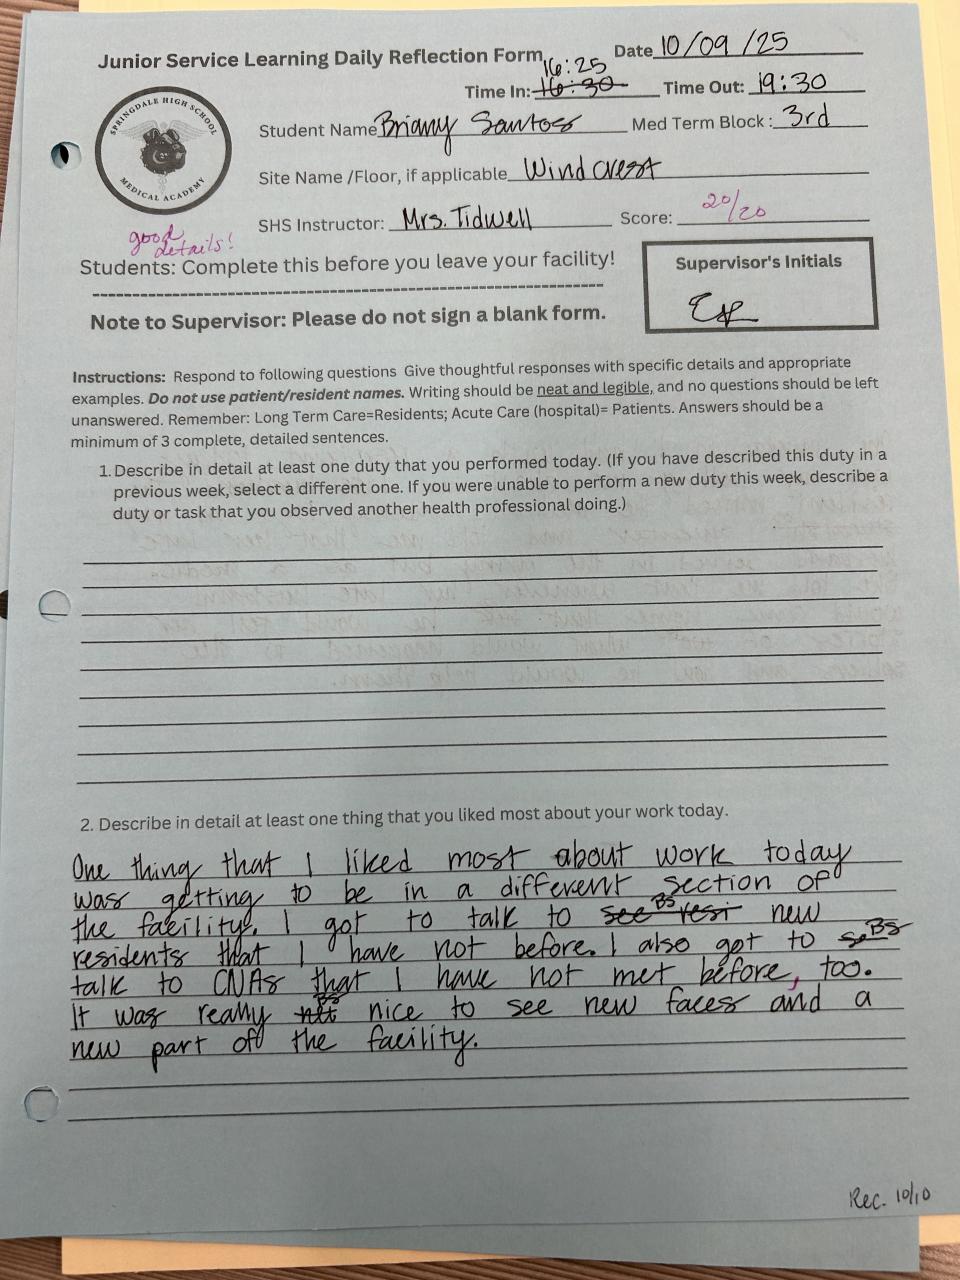 Junior Service Learning Daily Reflection Form
Date 10/09/25
16:25
Time In: 16:30 Time Out: 19:30
SPRINGDALE HIGH SCHOOL
MEDICAL ACADEMY
Student Name Briany Santos Med Term Block: 3rd
Site Name /Floor, if applicable Wind crest
SHS Instructor: Mrs. Tidwell Score: 20/20
good
details!
Students: Complete this before you leave your facility!
Supervisor's Initials
Note to Supervisor: Please do not sign a blank form.
Instructions: Respond to following questions Give thoughtful responses with specific details and appropriate
examples. Do not use patient/resident names. Writing should be neat and legible, and no questions should be left
unanswered. Remember: Long Term Care=Residents; Acute Care (hospital)= Patients. Answers should be a
minimum of 3 complete, detailed sentences.
1. Describe in detail at least one duty that you performed today. (If you have described this duty in a
previous week, select a different one. If you were unable to perform a new duty this week, describe a
duty or task that you observed another health professional doing.)
2. Describe in detail at least one thing that you liked most about your work today.
One thing that I liked most about work today
was getting to be in a different section of
the facility. I got to talk to see resi BS new
residents that I have not before. I also got to BS
talk to CNAs that I have not met before, too.
It was really BS nice to see new faces and a
new part off the facility.
Rec. 10/10